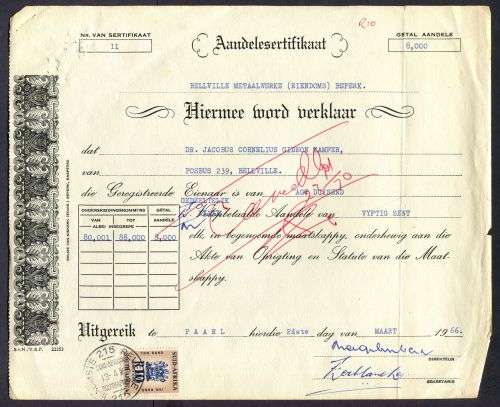 NR. VAN SERTIFIKAAT
11
Aandelesertifikaat
R10
GETAL AANDELE
8,000
BELLVILLE METAALWERKE (EIENDOMS) BEPERK.
Hiermee word verklaar
dat DR. JACOBUS CORNELIUS GIDEON KAMPER,
van POSBUS 239, BELLVILLE.
die Geregistreerde Eienaar is van AGT DUISEND
GEDEELTELIK
Volopbetaalde Aandele van VYFTIG SENT
Cancelled
ONDERSKEIDINGSNOMMERS GETAL
VAN ALBEI TOT INBEGREPE AANDELE
80,001 88,000 8,000
elk, in bogenoemde maatskappy, onderhewig aan die
Akte van Oprigting en Statute van die Maat-
skappy.
Uitgereik te PAARL hierdie 24ste dag van MAART 1966.
DIREKTEUR
SEKRETARIS
SUID-AFRIKA
R10